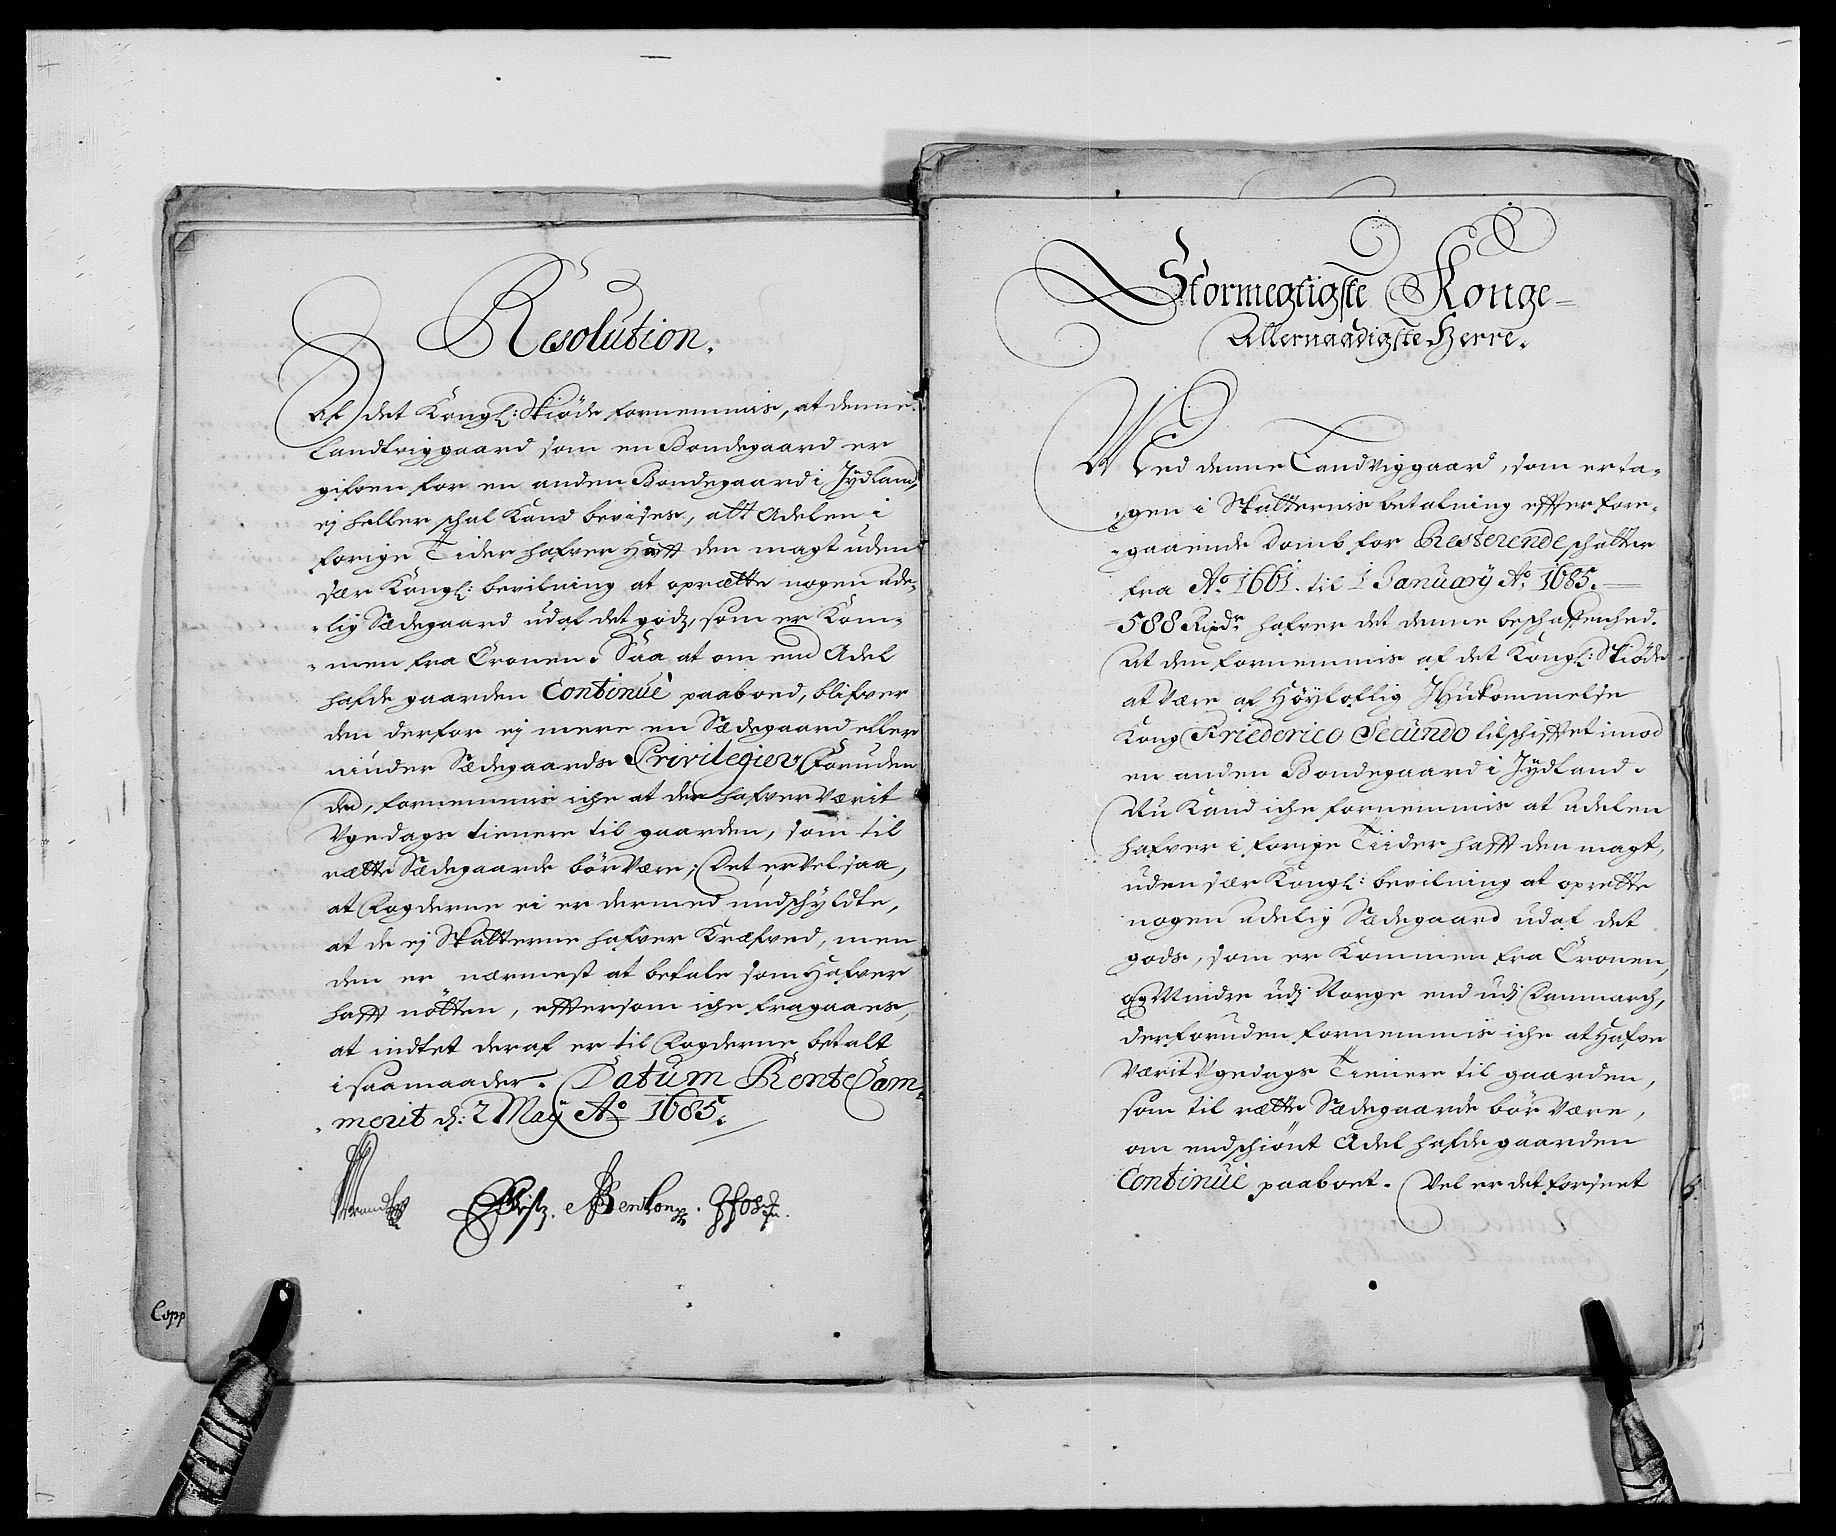 Resolution.
Af det Kongl: Skiøde fornemmis, at denne
Landtviggaard som en Bondegaard er
gifven for en anden Bondegaard i Jydland,
ej heller schal Kand bevises, att Adelen i
forige Tider hafver Hafft den magt uden
sær Kongl: bevilning at oprætte nogen ade-
-lig Sædegaard udaf det godz, som er Kom-
-men fra Cronen. Saa at om end Adel
hafde gaarden Continuè paaboed, blifver
den derfor ej mere en Sædegaard eller
niuder Sædegaards Privilegier, Foruden
det, fornemmis iche at der hafver Værit
Vgedags tienere til gaarden, som til
rætte Sædegaarde bör Være; Det er Vel saa,
at Fogderne ei er dermed undschyldte,
at de ej Skatterne hafver Kræfved, men
den er nærmest at betale som Hafver
hafft nötten, effter som iche fragaaes,
at indtet deraf er til Fogderne betalt
i saamaader. Datum Rente Cam-
-merit d: 2 May Ao 1685.
Copp
Stormegtigste Konge
Allernaadigste Herre.
Med denne Landviggaard, som er ta-
-gen i Skatternis betalning effter fore-
-gaaende Domb for Resterende schatter
fra Ao 1661. til 1 January Ao 1685.
588 Rixdr hafver det denne beschaffenhed.
At den fornemmis af det Kongl: Skiøde
at Være af Høyloflig Ihukommelse
Kong Friederico Secundo tilschifftet imod
en anden Bondegaard i Jydland.
Nu Kand iche fornemmis at adelen
hafver i forige Tiider hafft den magt,
uden sær Kongl: bevilning at oprette
nogen adelig Sædegaard udaf det
gods, som er Kommen fra Cronen,
og Mindre udj Norge end udj Danmarch,
derforuden fornemmis iche at Hafve
Værit Vgedags Tienere til gaarden,
som til rætte Sædegaarde bör Være,
om endschiønt Adel hafde gaarden
Continuè paaboet. Vel er det forseet